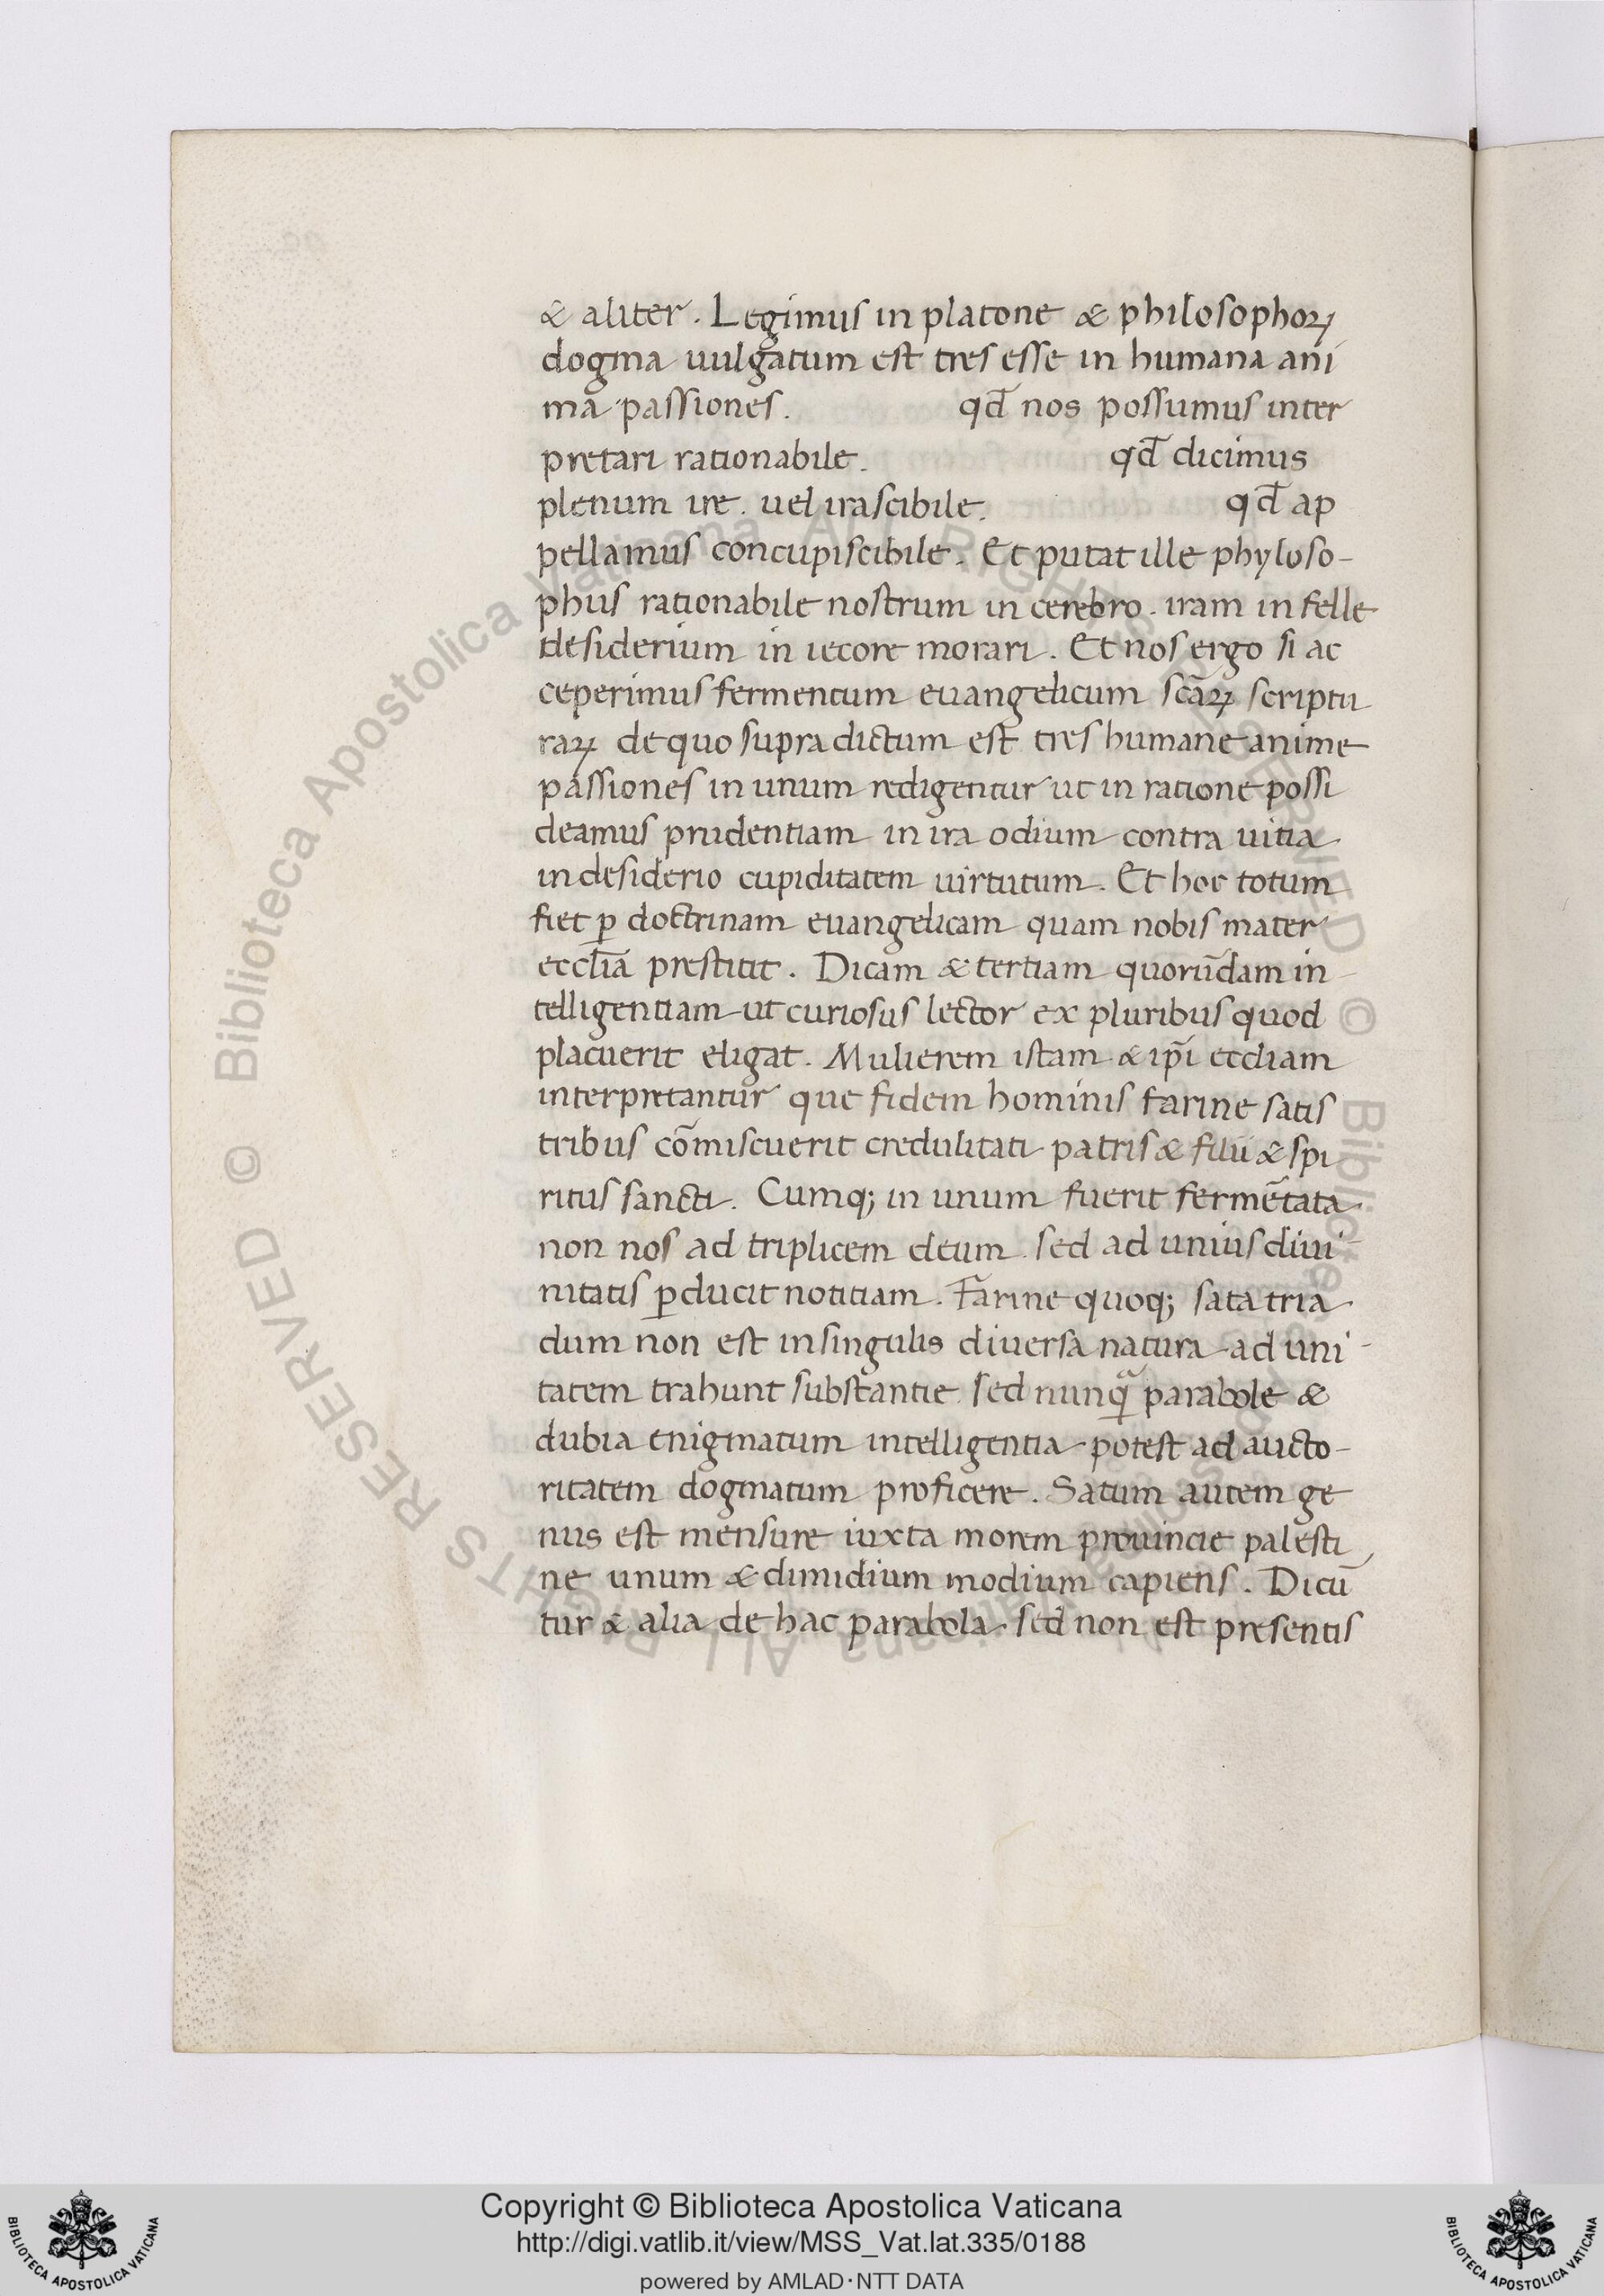 & aliter. Legimus in platone & philosophoꝝ
dogma uulgatum est tres esse in humana ani
ma passiones. qd̄ nos possumus inter
pretari rationabile. qd̄ dicimus
plenum ire. uel irascibile. qd̄ ap
pellamus concupiscibile. Et putat ille phyloso-
phus rationabile nostrum in cerebro. iram in felle
desiderium in iecore morari. Et nos ergo si ac
ceperimus fermentum euangelicum scāꝝ scriptu
raꝝ de quo supra dictum est tres humane anime
passiones in unum redigentur ut in ratione possi
deamus prudentiam in ira odium contra uitia
in desiderio cupiditatem uirtutum. Et hoc totum
fiet ꝑ doctrinam euangelicam quam nobis mater
eccl̄ia prestitit. Dicam & tertiam quorūdam in-
telligentiam ut curiosus lector ex pluribus quod
placuerit eligat. Mulierem istam & ip̄i eccliam
interpretantur que fidem hominis farine satis
tribus cōmiscuerit credulitati patris & filii & spi
ritus sancti. Cumq; in unum fuerit fermētata
non nos ad triplicem deum. sed ad unius diui-
nitatis ꝑducit notitiam. Farine quoq; sata tria
dum non est in singulis diuersa natura ad uni-
tatem trahunt substantie. sed nunqᷓ parabole &
dubia enigmatum intelligentia potest ad aucto-
ritatem dogmatum proficere. Satum autem ge
nus est mensure iuxta morem prouincie palesti
ne unum & dimidium modium capiens. Dicū
tur & alia de hac parabola. sed non est presentis
© Biblioteca Apostolica Vaticana ALL RIGHTS RESERVED © Biblioteca Apostolica Vaticana ALL RIGHTS RESERVED
Copyright © Biblioteca Apostolica Vaticana
http://digi.vatlib.it/view/MSS_Vat.lat.335/0188
powered by AMLAD·NTT DATA
BIBLIOTECA APOSTOLICA VATICANA
BIBLIOTECA APOSTOLICA VATICANA